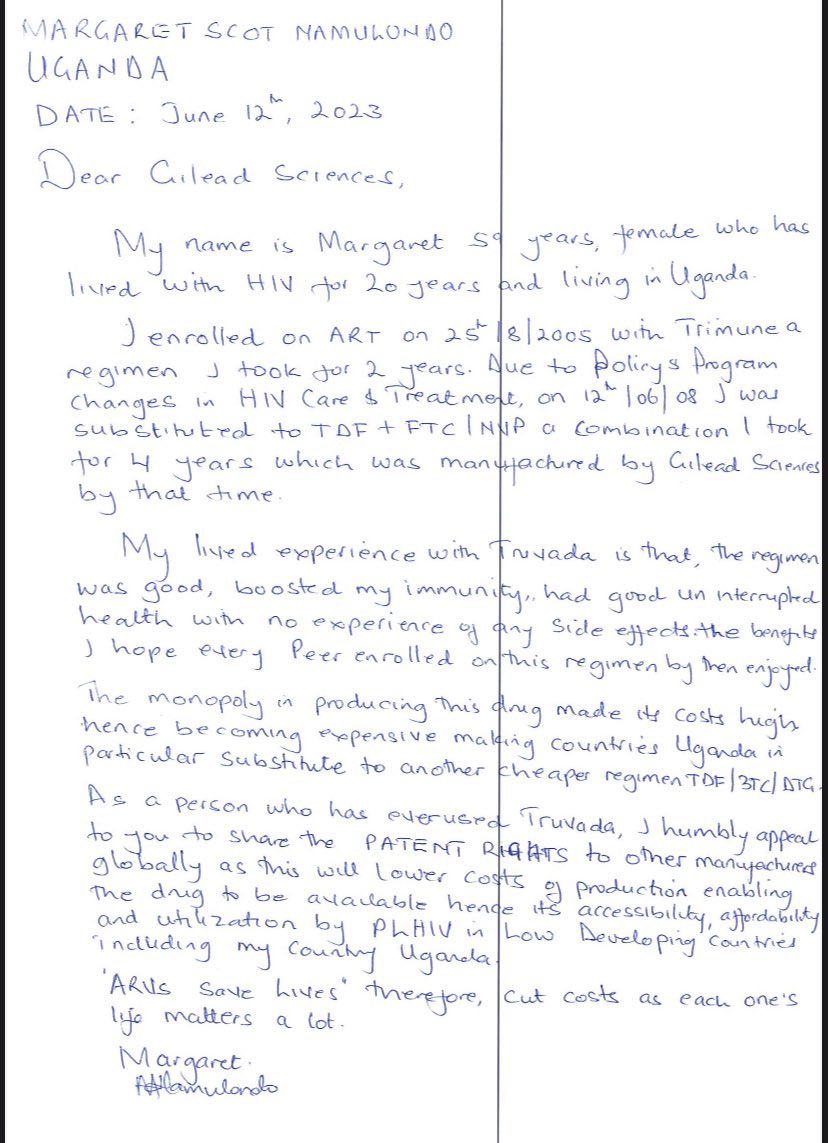 MARGARET SCOT NAMULONDO
UGANDA
DATE : June 12th, 2023
Dear Gilead Sciences,
My name is Margaret 59 years, female who has
lived with HIV for 20 years and living in Uganda.
I enrolled on ART on 25th/8/2005 with Trimune a
regimen I took for 2 years. Due to Policy & Program
changes in HIV Care & Treatment, on 12th/06/08 I was
substituted to TDF + FTC/NVP a combination I took
for 4 years which was manufactured by Gilead Sciences
by that time.
My lived experience with Truvada is that, the regimen
was good, boosted my immunity, had good un interrupted
health with no experience of any side effects. the benefits
I hope every Peer enrolled on this regimen by then enjoyed.
The monopoly in producing this drug made its costs high
hence becoming expensive making countries Uganda in
particular substitute to another cheaper regimen TDF/3TC/DTG.
As a person who has ever used Truvada, I humbly appeal
to you to share the PATENT RIGHTS to other manufacturers
globally as this will lower costs of production enabling
the drug to be available hence its accessibility, affordability
and utilization by PLHIV in Low Developing Countries
including my country Uganda.
"ARVs Save Lives" therefore, cut costs as each one's
life matters a lot.
Margaret.
Namulondo